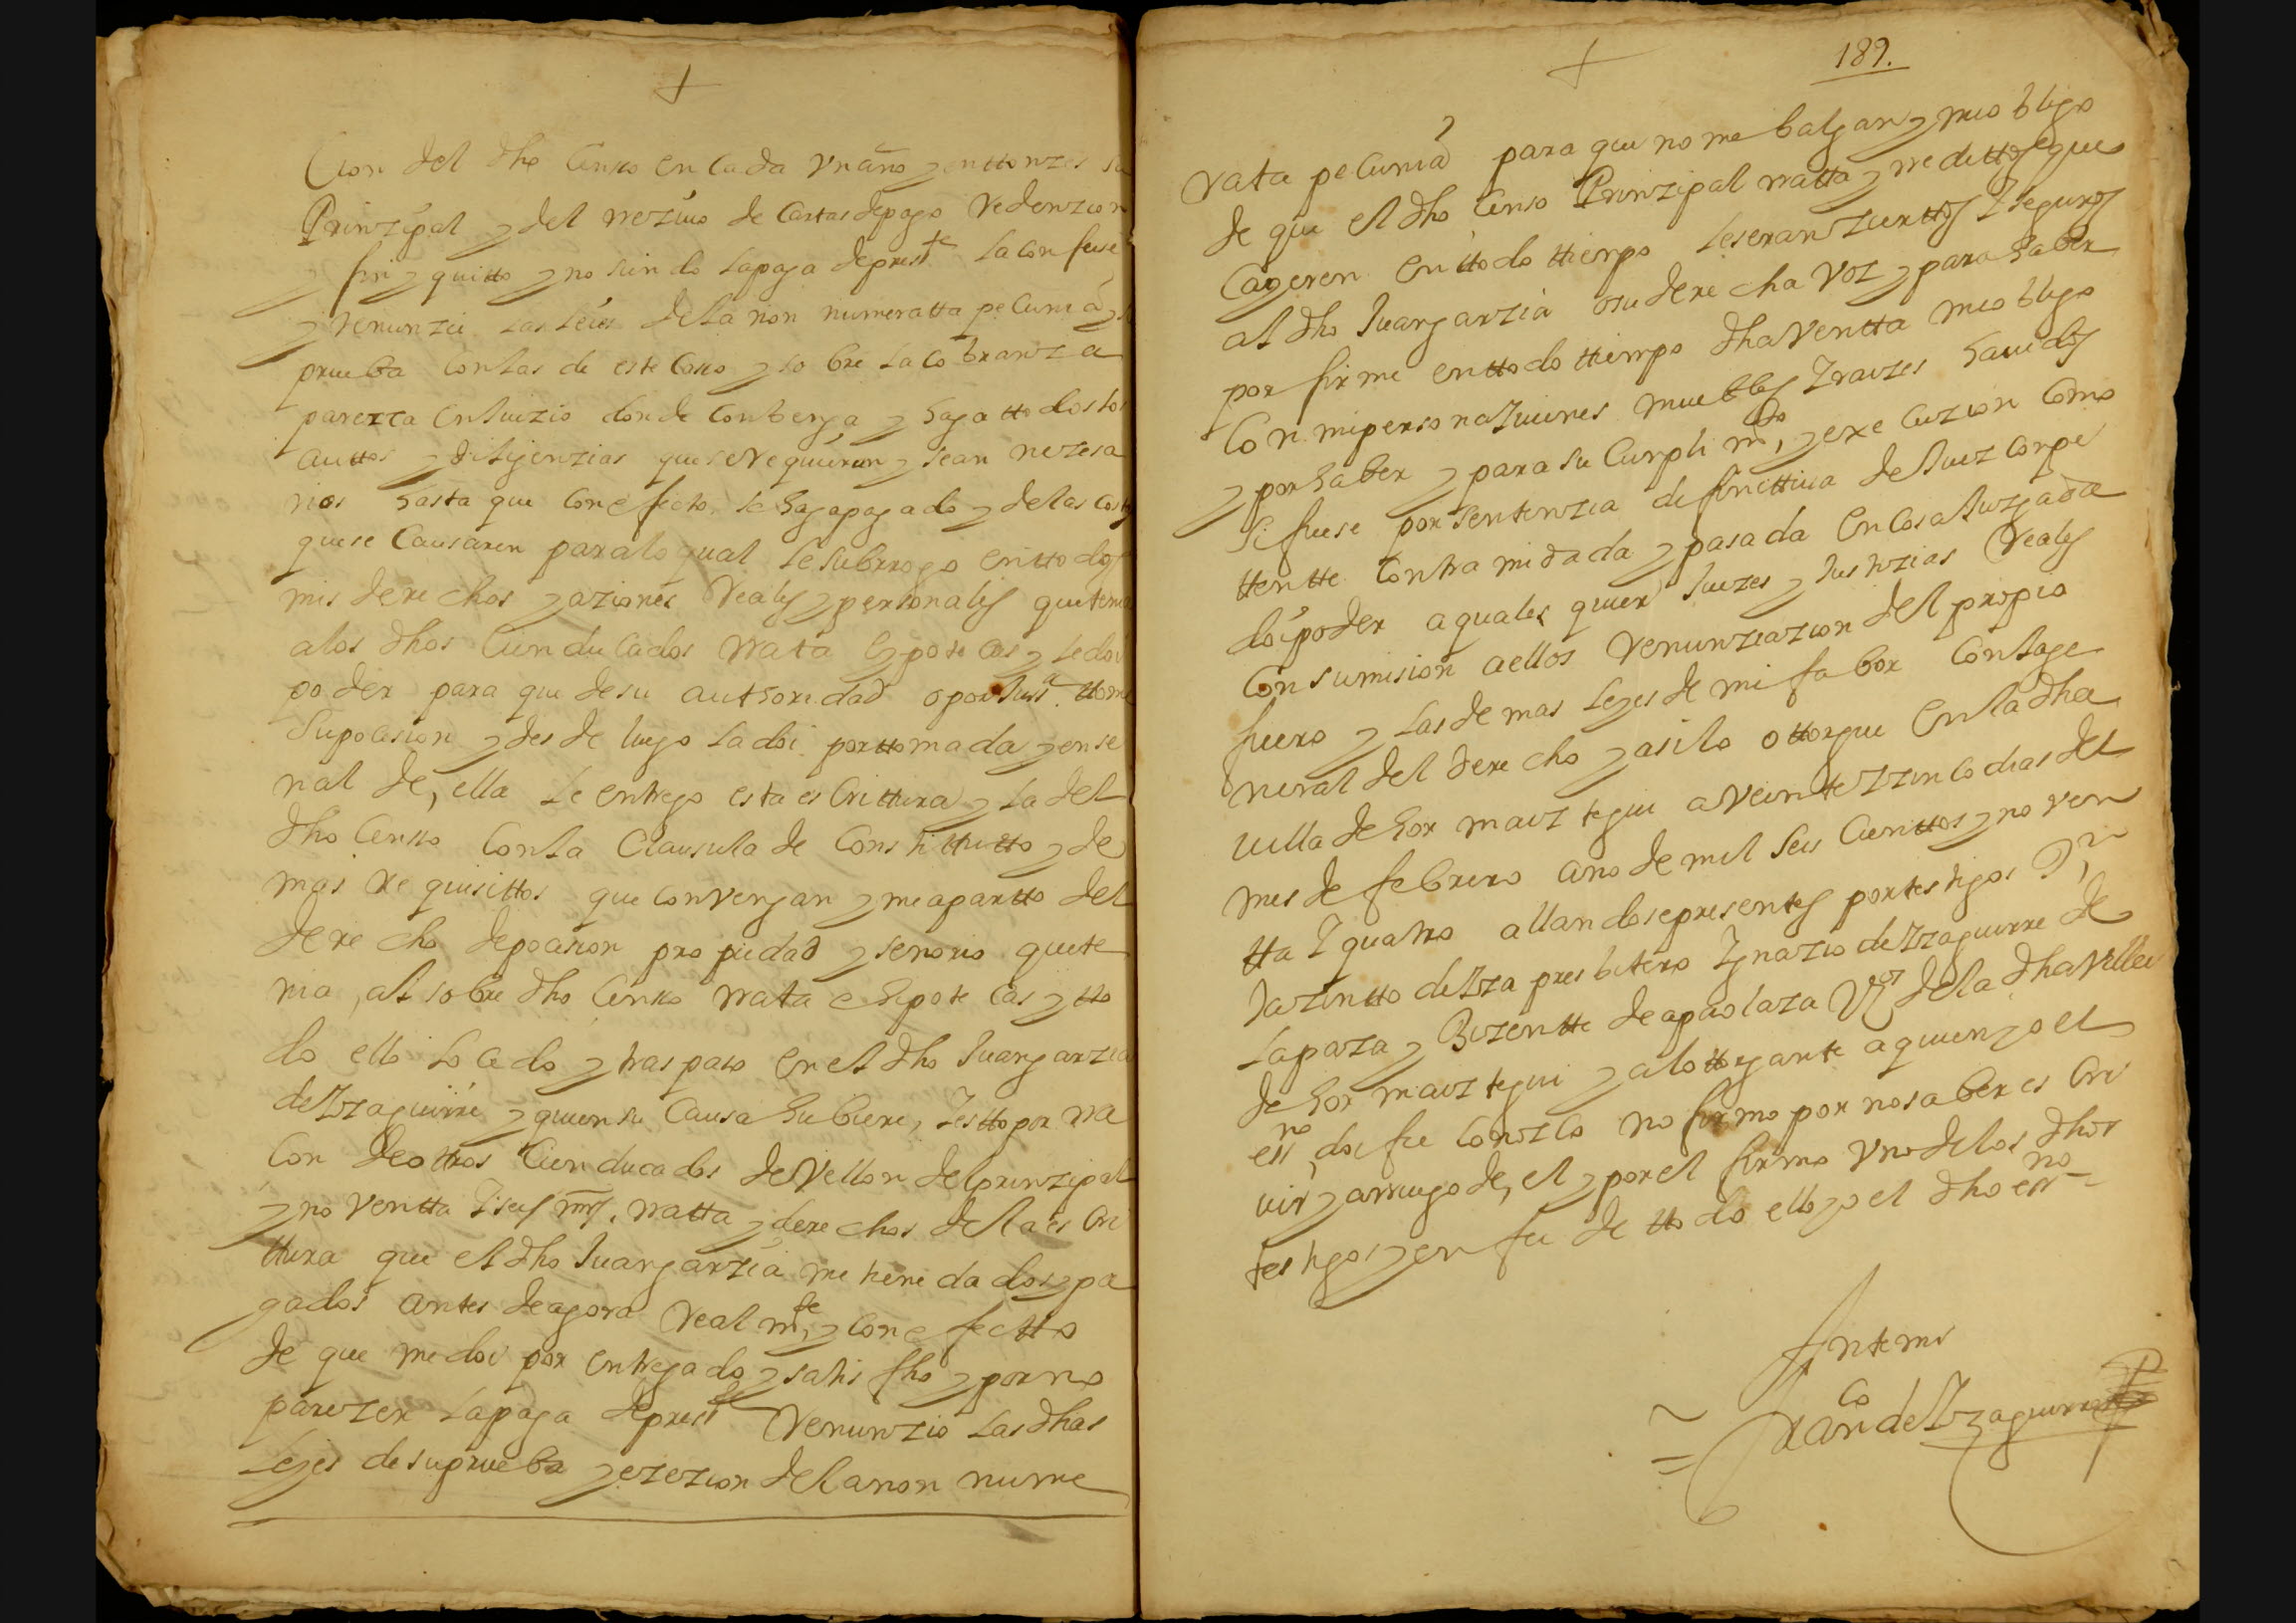 +
Cion del dho Censo en Cada Vn año y enttonzes su
Prinzipal y del rrezivo de Cartas de pago Redenzion
y fin y quitto y no siendo la paga de presste la confiese
y rrenunzie las leies dela non numeratta pecunia y
prueba con las de este Caso y sobre la cobranza
parezca en Juizio donde Conbenga y haga ttodos los
auttos y dilijenzias que se requieran y sean nezesa
rios hasta que con efecto, se haya pagado y de las costas
que se Causaren para lo qual le subrrogo en ttodos
mis derechos y aziones Reales y personales que tenia
a los dhos Cien ducados rrata Ypotecas y le doi
poder para que de su authoridad o por Justa ttome
Su posesion y desde luego la doi por ttomada y en se
ñal de, ella le entrego esta escrittura y la del
dho Censo Con la Clausula de Constittutto y de
mas Requisittos que convengan y me apartto del
derecho de posesion propiedad y señorio que te
nia, al sobre dho Censo rrata e hipotecas y tto
do ello lo Cedo y traspaso en el dho Juan garzia
de Yzaguirre y quien su Causa hubiere, y estto por rra
con de ottros Cien ducados de Vellon del prinzipal
y noventta y seis mrs. rratta y derechos de la escri
ttura que el dho Juan garzia me tiene dados y pa
gados antes de agora Realmte, y con efectto
de que me doi por entregado y satisfho y por no
parezer la paga de presste Renunzio las dhas
Leyes de su prueba y ezezion de la non nume
+
189.
rata pecunia para que no me balgan y me obligo
de que el dho Censo Prinzipal rratta y redittos que
Cayeren en ttodo ttiempo le seran zierttos y seguros
al dho Juan garzia o su derecha Voz y para haber
por firme en ttodo ttiempo dha Ventta me obligo
Con mi persona y vienes muebles y raizes hauidos
y por haber y para su Cumplimto, y execuzion Como
si fuese por sentenzia difinittiua de Juez conpe
ttentte Contra mi dada y pasada en Cosa Juzgada
doi poder a qualesquier Juezes y Justizias Reales
Con sumision a ellos Renunziazion del propio
fuero y las demas leyes de mi fabor Con la ge
neral del derecho y asi lo ottorgue en la dha
villa de hormaiztegui a Veinte y zinco dias del
mes de febrero año de mil seis Cienttos y noven
tta y quatro allandose presentes por testigos Dn
Jazintto de Yza presbitero Ygnazio de Yzaguirre de
Lapaza y Bizentte de apaolaza Vzos de la dha Villa
de hormaiztegui y al ottorgante a quien yo el
essno, doi fee conozco no firmo por no saber escri
uir y a rruego de, el y por el firmo Vno de los dhos
testigos y en fee de ttodo ello yo el dho essno
Ante mi
Franco de Yzaguirre